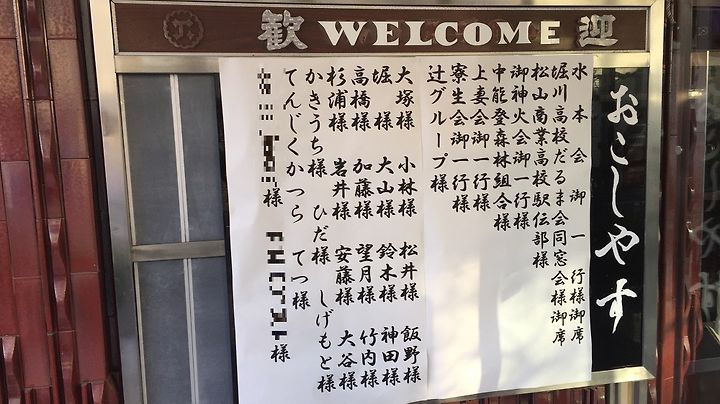 歓 WELCOME 迎
おこしやす
水本会御一行様御席
堀川高校だるま会同窓会様御席
松山商業高校駅伝部様
御神火会御一行様
中能登森林組合様
上妻会御一行様
寮生会御一行様
辻グループ様
大塚様 小林様 松井様 飯野様
堀様 大山様 鈴木様 神田様
高橋様 加藤様 望月様 竹内様
杉浦様 岩井様 安藤様 大谷様
かきうち様 ひだ様 しげもと様
てんじくかつら てつ様
様 様